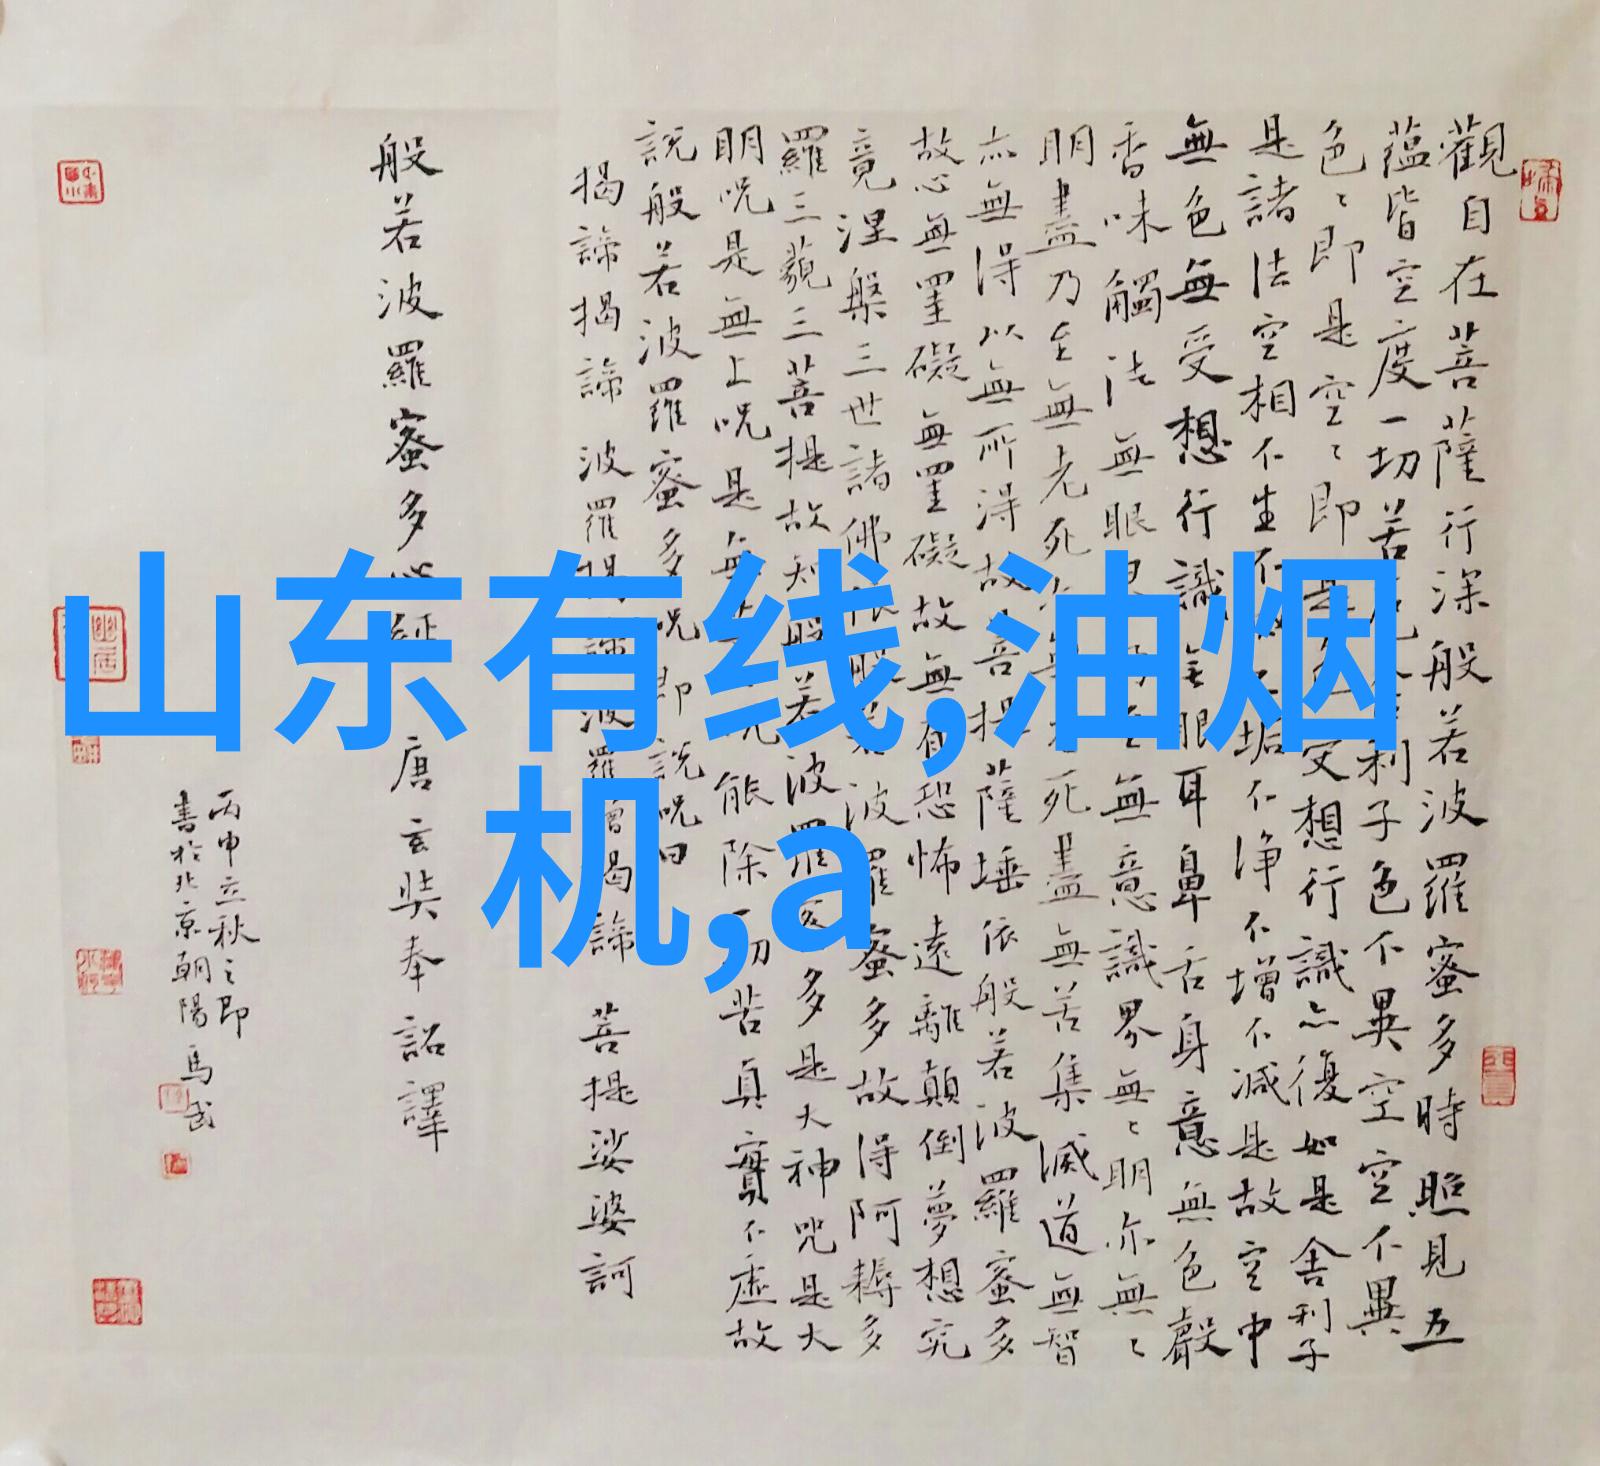 觀自在菩薩行深般若波羅蜜多時照見五
蘊皆空度一切苦厄舍利子色不異空空不異
色〻即是空〻即是色受想行識亦復如是舍利子
是諸法空相不生不滅不垢不净不增不减是故空中
無色無受想行識無眼耳鼻舌身意無色聲
香味觸法無眼界乃至無意識界無〻明亦無〻
明盡乃至無老死亦無老死盡無苦集滅道無智
亦無得以無所得故菩提薩埵依般若波羅蜜多
故心無罣礙無罣礙故無有恐怖遠離顛倒夢想究
竟涅槃三世諸佛依般若波羅蜜多故得阿耨多
羅三藐三菩提故知般若波羅蜜多是大神咒是大
明呪是無上呪是無呪能除一切苦真實不虛故
說般若波羅蜜多呪即說呪曰
揭諦揭諦 波羅揭諦 波羅僧揭諦 菩提娑婆訶
般若波羅蜜多心經 唐玄奘奉詔譯
丙申立秋之即
書於北京朝陽馬武
山东有线,油烟
机,a